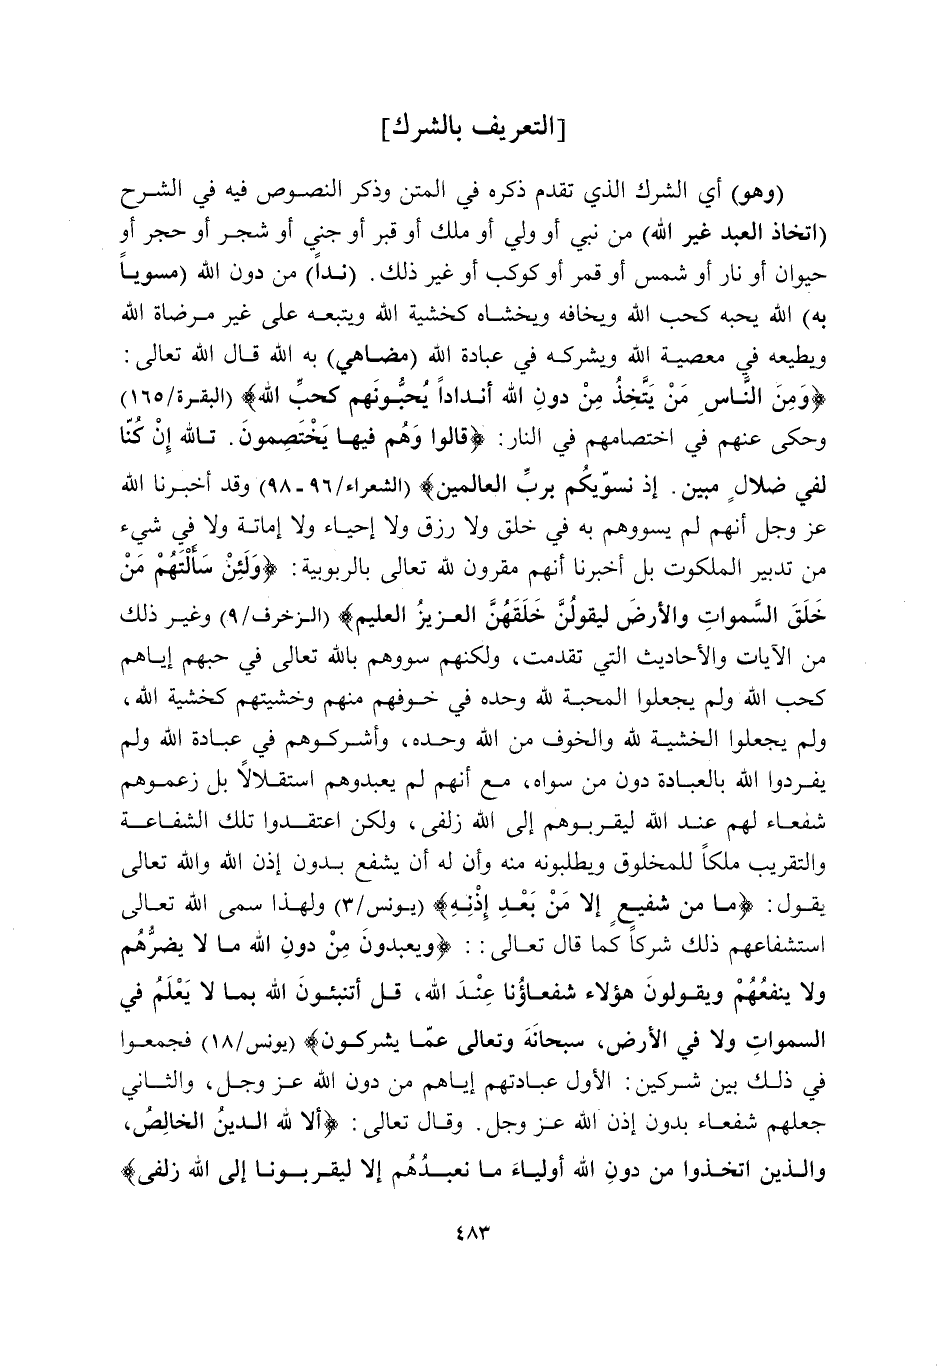 [التعريف بالشرك]
(وهو) أي الشرك الذي تقدم ذكره في المتن وذكر النصوص فيه في الشرح
(اتخاذ العبد غير الله) من نبي أو ولي أو ملك أو قبر أو جني أو شجر أو حجر أو
حيوان أو نار أو شمس أو قمر أو كوكب أو غير ذلك. (نداً) من دون الله (مسوياً
به) الله يحبه كحب الله ويخافه ويخشاه كخشية الله ويتبعه على غير مرضاة الله
ويطيعه في معصية الله ويشركه في عبادة الله (مضاهي) به الله قال الله تعالى:
﴿وَمِنَ النَّاسِ مَنْ يَتَّخِذُ مِنْ دونِ الله أنداداً يُحبُّونَهم كحبِّ الله﴾ (البقرة/١٦٥)
وحكى عنهم في اختصامهم في النار: ﴿قالوا وَهُم فيها يَخْتَصِمونَ. تالله إِنْ كُنّا
لفي ضلالٍ مبين. إذ نسوّيكُم بربِّ العالمين﴾ (الشعراء/٩٦-٩٨) وقد أخبرنا الله
عز وجل أنهم لم يسووهم به في خلق ولا رزق ولا إحياء ولا إماتة ولا في شيء
من تدبير الملكوت بل أخبرنا أنهم مقرون لله تعالى بالربوبية: ﴿وَلَئِنْ سَأَلْتَهُمْ مَنْ
خَلَقَ السَّمواتِ والأرضَ ليقولُنَّ خَلَقَهُنَّ العزيزُ العليم﴾ (الزخرف/٩) وغير ذلك
من الآيات والأحاديث التي تقدمت، ولكنهم سووهم بالله تعالى في حبهم إياهم
كحب الله ولم يجعلوا المحبة لله وحده في خوفهم منهم وخشيتهم كخشية الله،
ولم يجعلوا الخشية لله والخوف من الله وحده، وأشركوهم في عبادة الله ولم
يفردوا الله بالعبادة دون من سواه، مع أنهم لم يعبدوهم استقلالاً بل زعموهم
شفعاء لهم عند الله ليقربوهم إلى الله زلفى، ولكن اعتقدوا تلك الشفاعة
والتقريب ملكاً للمخلوق ويطلبونه منه وأن له أن يشفع بدون إذن الله والله تعالى
يقول: ﴿ما من شفيعٍ إلا مَنْ بَعْدِ إِذْنِهِ﴾ (يونس/٣) ولهذا سمى الله تعالى
استشفاعهم ذلك شركاً كما قال تعالى:: ﴿ويعبدونَ مِنْ دونِ الله ما لا يضرُّهُم
ولا ينفعُهُمْ ويقولونَ هؤلاء شفعاؤنا عِنْدَ الله، قل أتنبئونَ الله بما لا يَعْلَمُ في
السمواتِ ولا في الأرض، سبحانَهَ وتعالى عمّا يشركون﴾ (يونس/١٨) فجمعوا
في ذلك بين شركين: الأول عبادتهم إياهم من دون الله عز وجل، والثاني
جعلهم شفعاء بدون إذن الله عز وجل. وقال تعالى: ﴿ألا لله الدينُ الخالِصُ،
والذين اتخذوا من دونِ الله أولياءَ ما نعبدُهُم إلا ليقربونا إلى الله زلفى﴾
٤٨٣